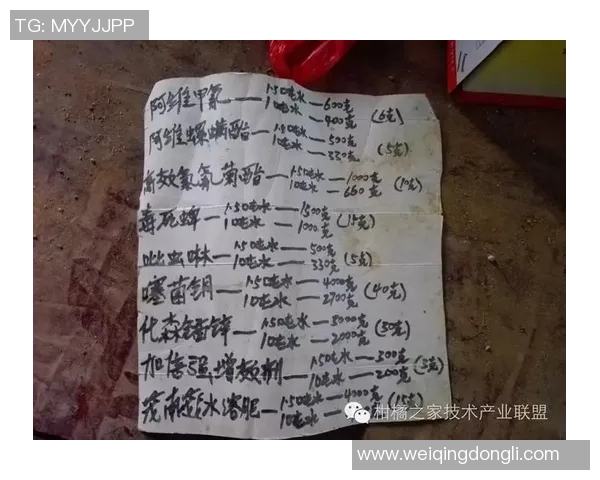 TG: MYYJJPP
阿维甲氰 1.50吨水—600克
1吨水—400克 (6克)
阿维螺螨酯 1.50吨水—500克
1吨水—330克 (5克)
高效氯氰菊酯 1.50吨水—1000克
1吨水—660克 (10克)
毒死蜱 1.50吨水—1500克
1吨水—1000克 (15克)
吡虫啉 1.50吨水—500克
1吨水—330克 (5克)
噻菌铜 1.50吨水—4000克
1吨水—2700克 (40克)
代森锰锌 1.50吨水—3000克
1吨水—2000克 (30克)
加倍强增效剂 1.50吨水—300克
1吨水—200克 (3克)
水溶肥 1.50吨水—4000克
1吨水 (15克)
柑橘之家技术产业联盟
www.weiqingdongli.com